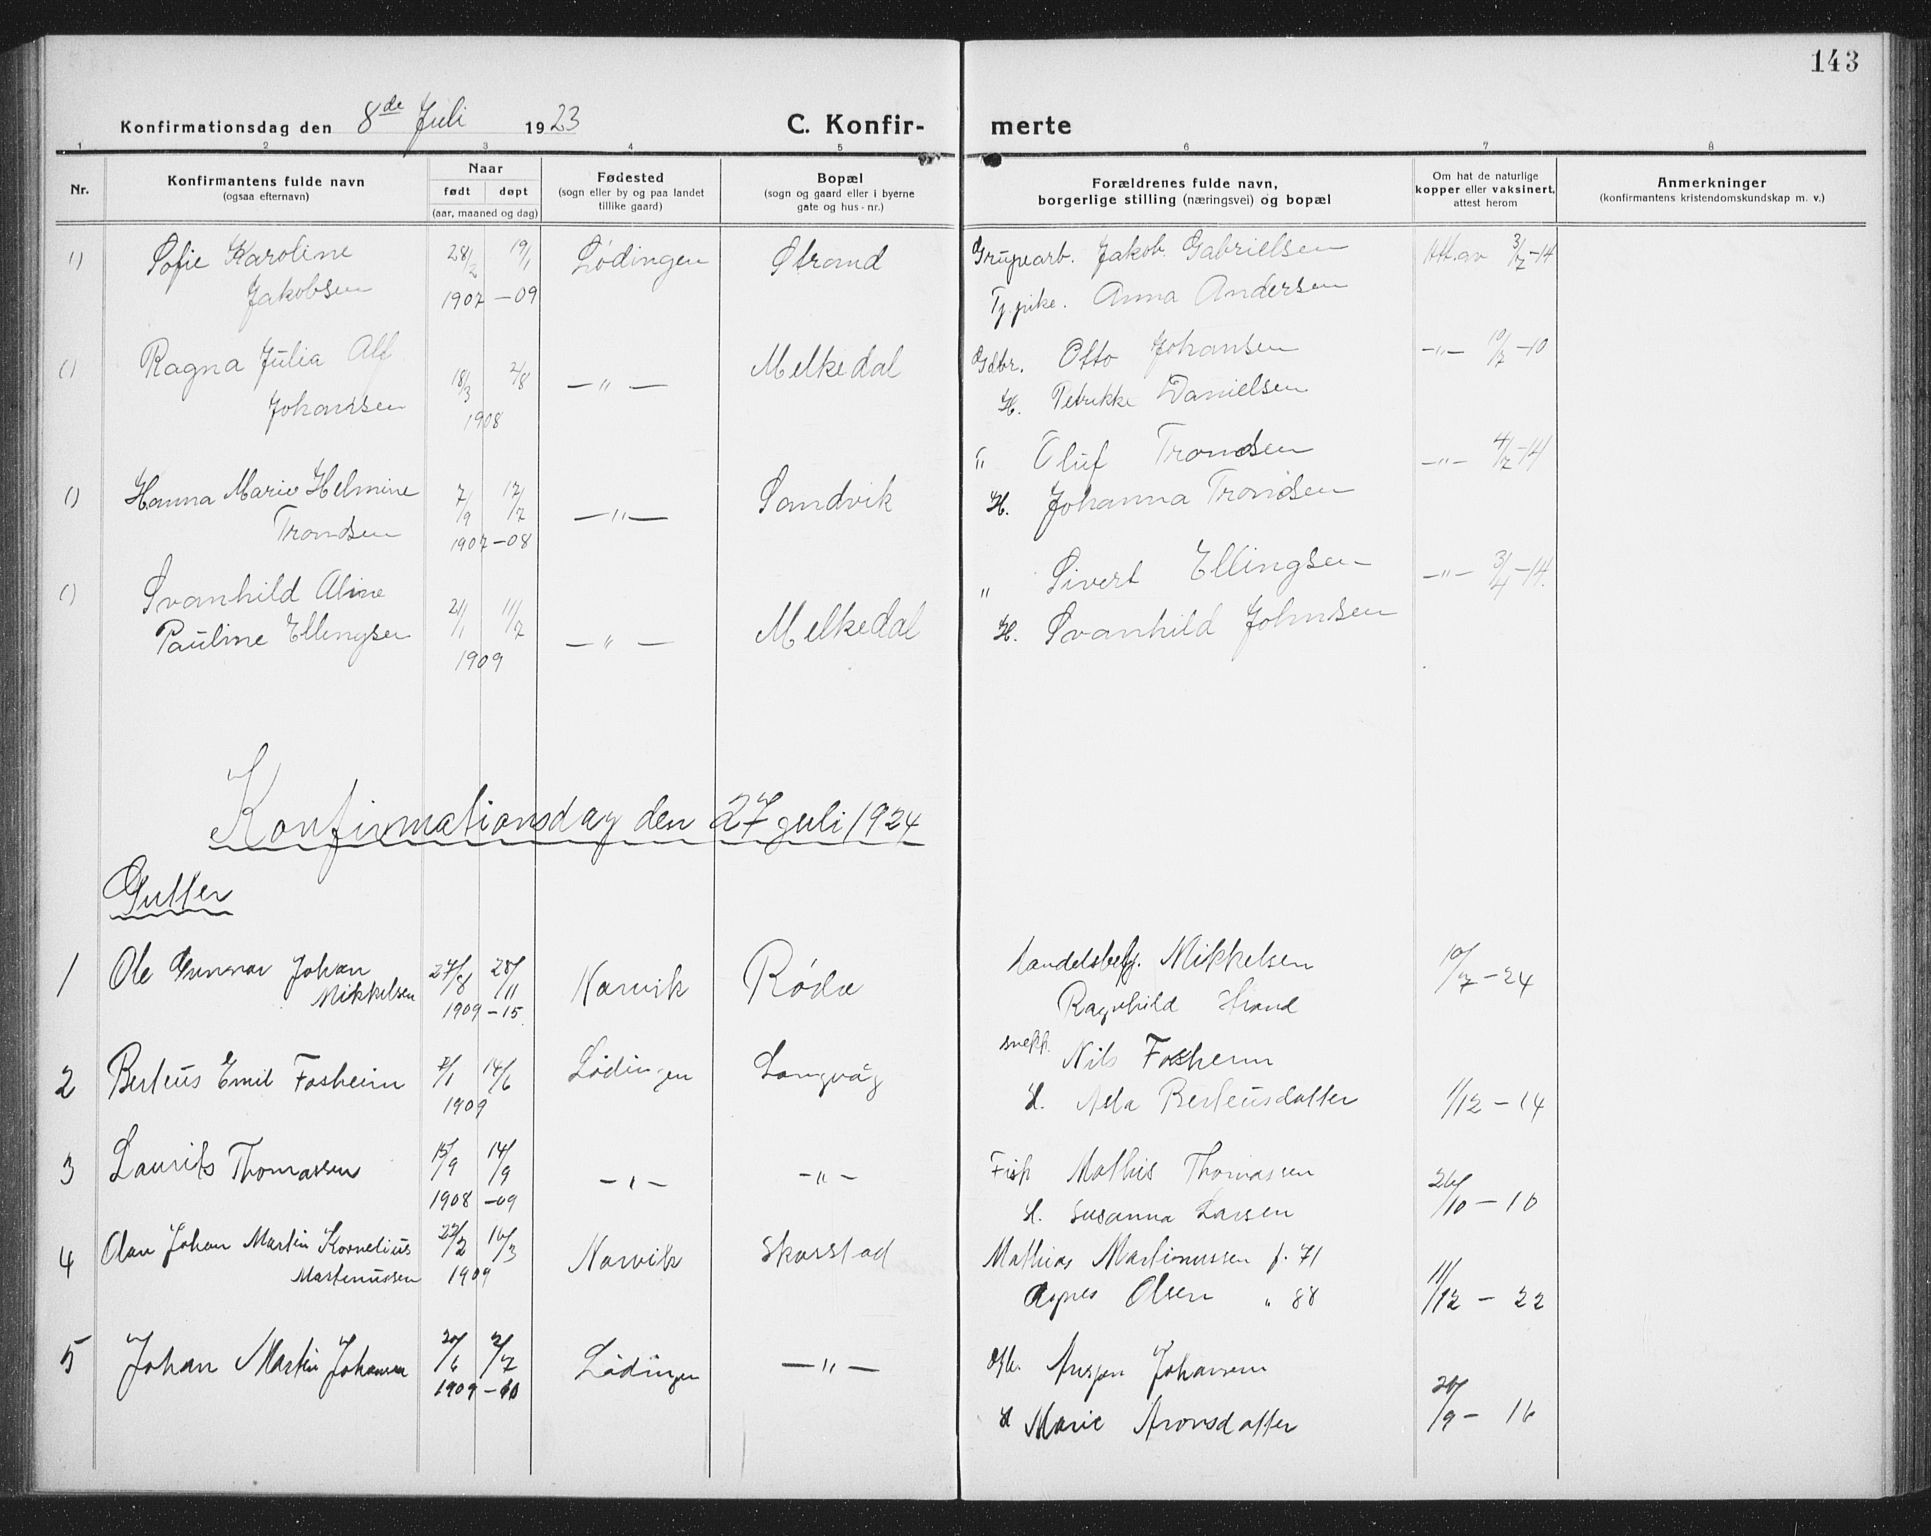 143
Konfirmationsdag den 8de Juli 1923 C. Konfir- merte
1 2 3 4 5 6 7 8
Nr. Konfirmantens fulde navn (ogsaa efternavn) Naar født døpt (aar, maaned og dag) Fødested (sogn eller by og paa landet tillike gaard) Bopæl (sogn og gaard eller i byerne gate og hus-nr.) Forældrenes fulde navn, borgerlige stilling (næringsvei) og bopæl Om hat de naturlige kopper eller vaksinert, attest herom Anmerkninger (konfirmantens kristendomskundskap m. v.)
Sofie Karoline 28/2 19/1 Lødingen Strand Grupearb. Jakob Gabrielsen Att. av 3/7-14
Jakobsen 1907 -09 Tj.pike. Anna Andersen
Ragna Julia Alf 18/3 2/8 -"- Melkedal Gdbr. Otto Johansen -"- 10/7-10
Johansen 1908 H. Petrikke Danielsen
Hanna Marie Helmine 7/9 17/7 -"- Sandvik " Oluf Trondsen -"- 4/7-14
Trondsen 1907-08 H. Johanna Trondsen
Svanhild Aline 21/1 11/7 -"- Melkedal " Sivert Ellingsen -"- 3/7-14.
Pauline Ellingsen 1909 H. Svanhild Johnsen
Konfirmationsdag den 27 juli 1924
Gutter
1 Ole Gunnar Johan 27/8 28/11 Narvik Røda Handelsbetj. Mikkelsen 10/7-24
Mikkelsen 1909-15. Ragnhild Strand
2 Berteus Emil Fosheim 14/6 Lødingen Langvåg snekk. Nils Fosheim
1909 H. Berteusdatter 1/12-14
3 Laurits Thomassen 15/9 14/9 -"- -"- Fisk Mathis Thomassen 26/10-10
1908 -09 H. Susanna Larsen
4 Olav Johan Martin Kornelius 22/2 16/3 Narvik Skarstad Mathias Martinussen f. 71 11/12-22
Martinussen 1909 Agnes Olsen " 88
5 Johan Martin Johansen 20/6 2/7 Lødingen -"- Johansen 26/9-16
1909-10 H Marie Aronsdatter